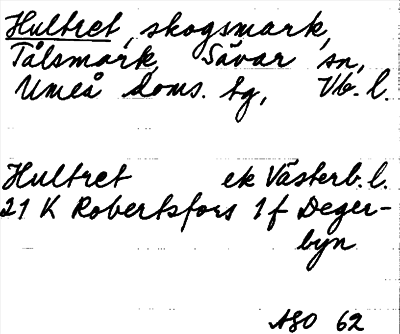 Hultret, skogsmark,
Tålsmark, Sävar sn,
Umeå doms. tg, Vb. l.
Hultret ek Västerb. l.
21 K Robertsfors 1f Deger-
byn
ASO 62